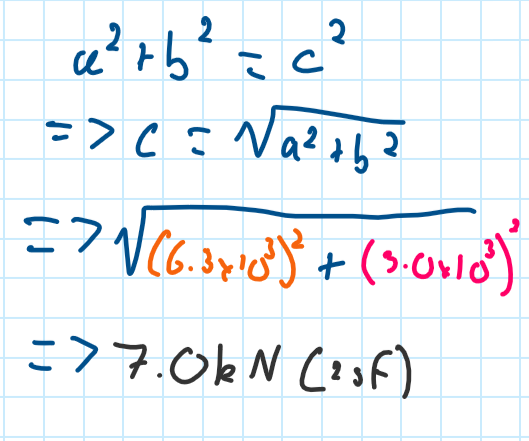 a² + b² = c²
=> c = √a² + b²
=> √(6.3×10³)² + (3.0×10³)²
=> 7.0kN (2sf)